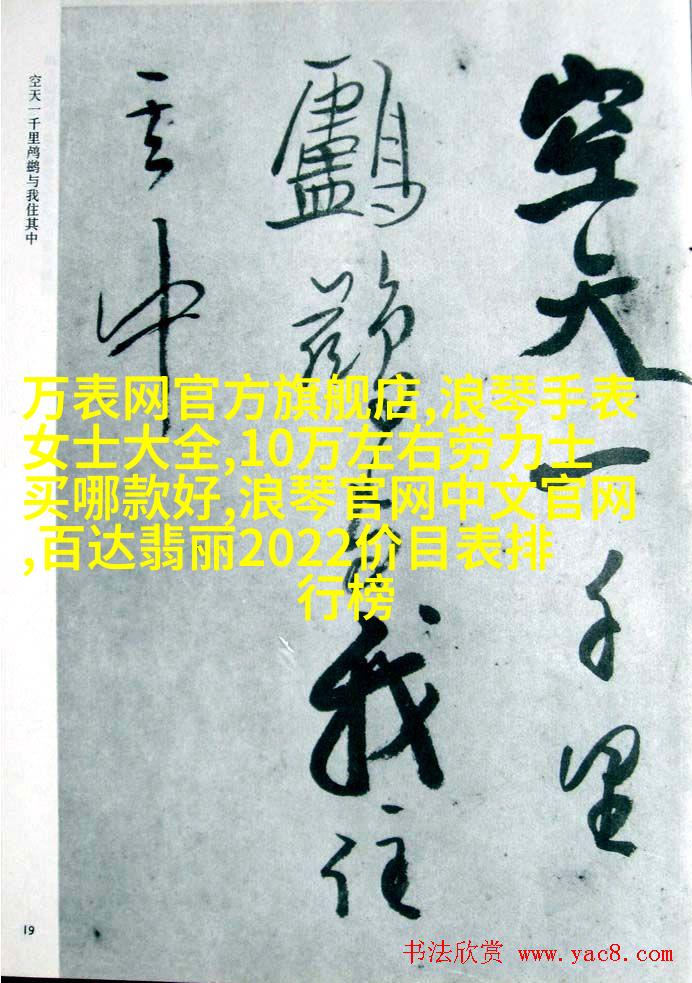 空天一千里
鸕鷀与我住
其中
空天一千里鸬鹚与我住其中
万表网官方旗舰店,浪琴手表
女士大全,10万左右劳力士
买哪款好,浪琴官网中文官网
,百达翡丽2022价目表排
行榜
19
书法欣赏 www.yac8.com